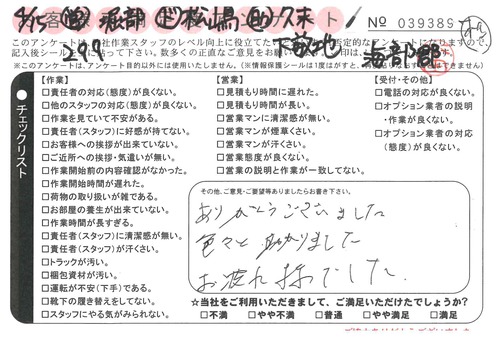 9/15
No 039389
このアンケートは
作業スタッフのレベル向上に役立てたい
記入後シール
数多くの正直なご意見をお
※このアンケートは、アンケート目的以外には使用いたしません。(※情報保護シールは1度はがすと、
【作業】
□責任者の対応(態度)が良くない。
□他のスタッフの対応(態度)が良くない。
□作業を見ていて不安がある。
□責任者(スタッフ)に好感が持てない。
□お客様への挨拶が出来ていない。
□ご近所への挨拶・気遣いが無い。
□作業開始前の内容確認がなかった。
□作業開始時間が遅れた。
□荷物の取り扱いが雑である。
□お部屋の養生が出来ていない。
□作業時間が長すぎる。
□責任者(スタッフ)に清潔感が無い。
□責任者(スタッフ)が汗くさい。
□トラックが汚い。
□梱包資材が汚い。
□運転が不安(下手)である。
□靴下の履き替えをしてない。
□スタッフにやる気がみられない。
【営業】
□見積もり時間に遅れた。
□見積もり時間が長い。
□営業マンに清潔感が無い。
□営業マンが煙草くさい。
□営業マンが汗くさい。
□営業態度が良くない。
□営業の説明と作業が一致してない。
【受付・その他】
□電話の対応が良くない。
□オプション業者の説明
・作業が良くない。
□オプション業者の対応
(態度)が良くない。
●チェックリスト
その他、ご意見・ご要望等ありましたらお書き下さい。
ありがとうございました
色々と助かりました
お疲れ様でした。
☆当社をご利用いただきまして、ご満足いただけたでしょうか?
□不満 □やや不満 □普通 □やや満足 □満足